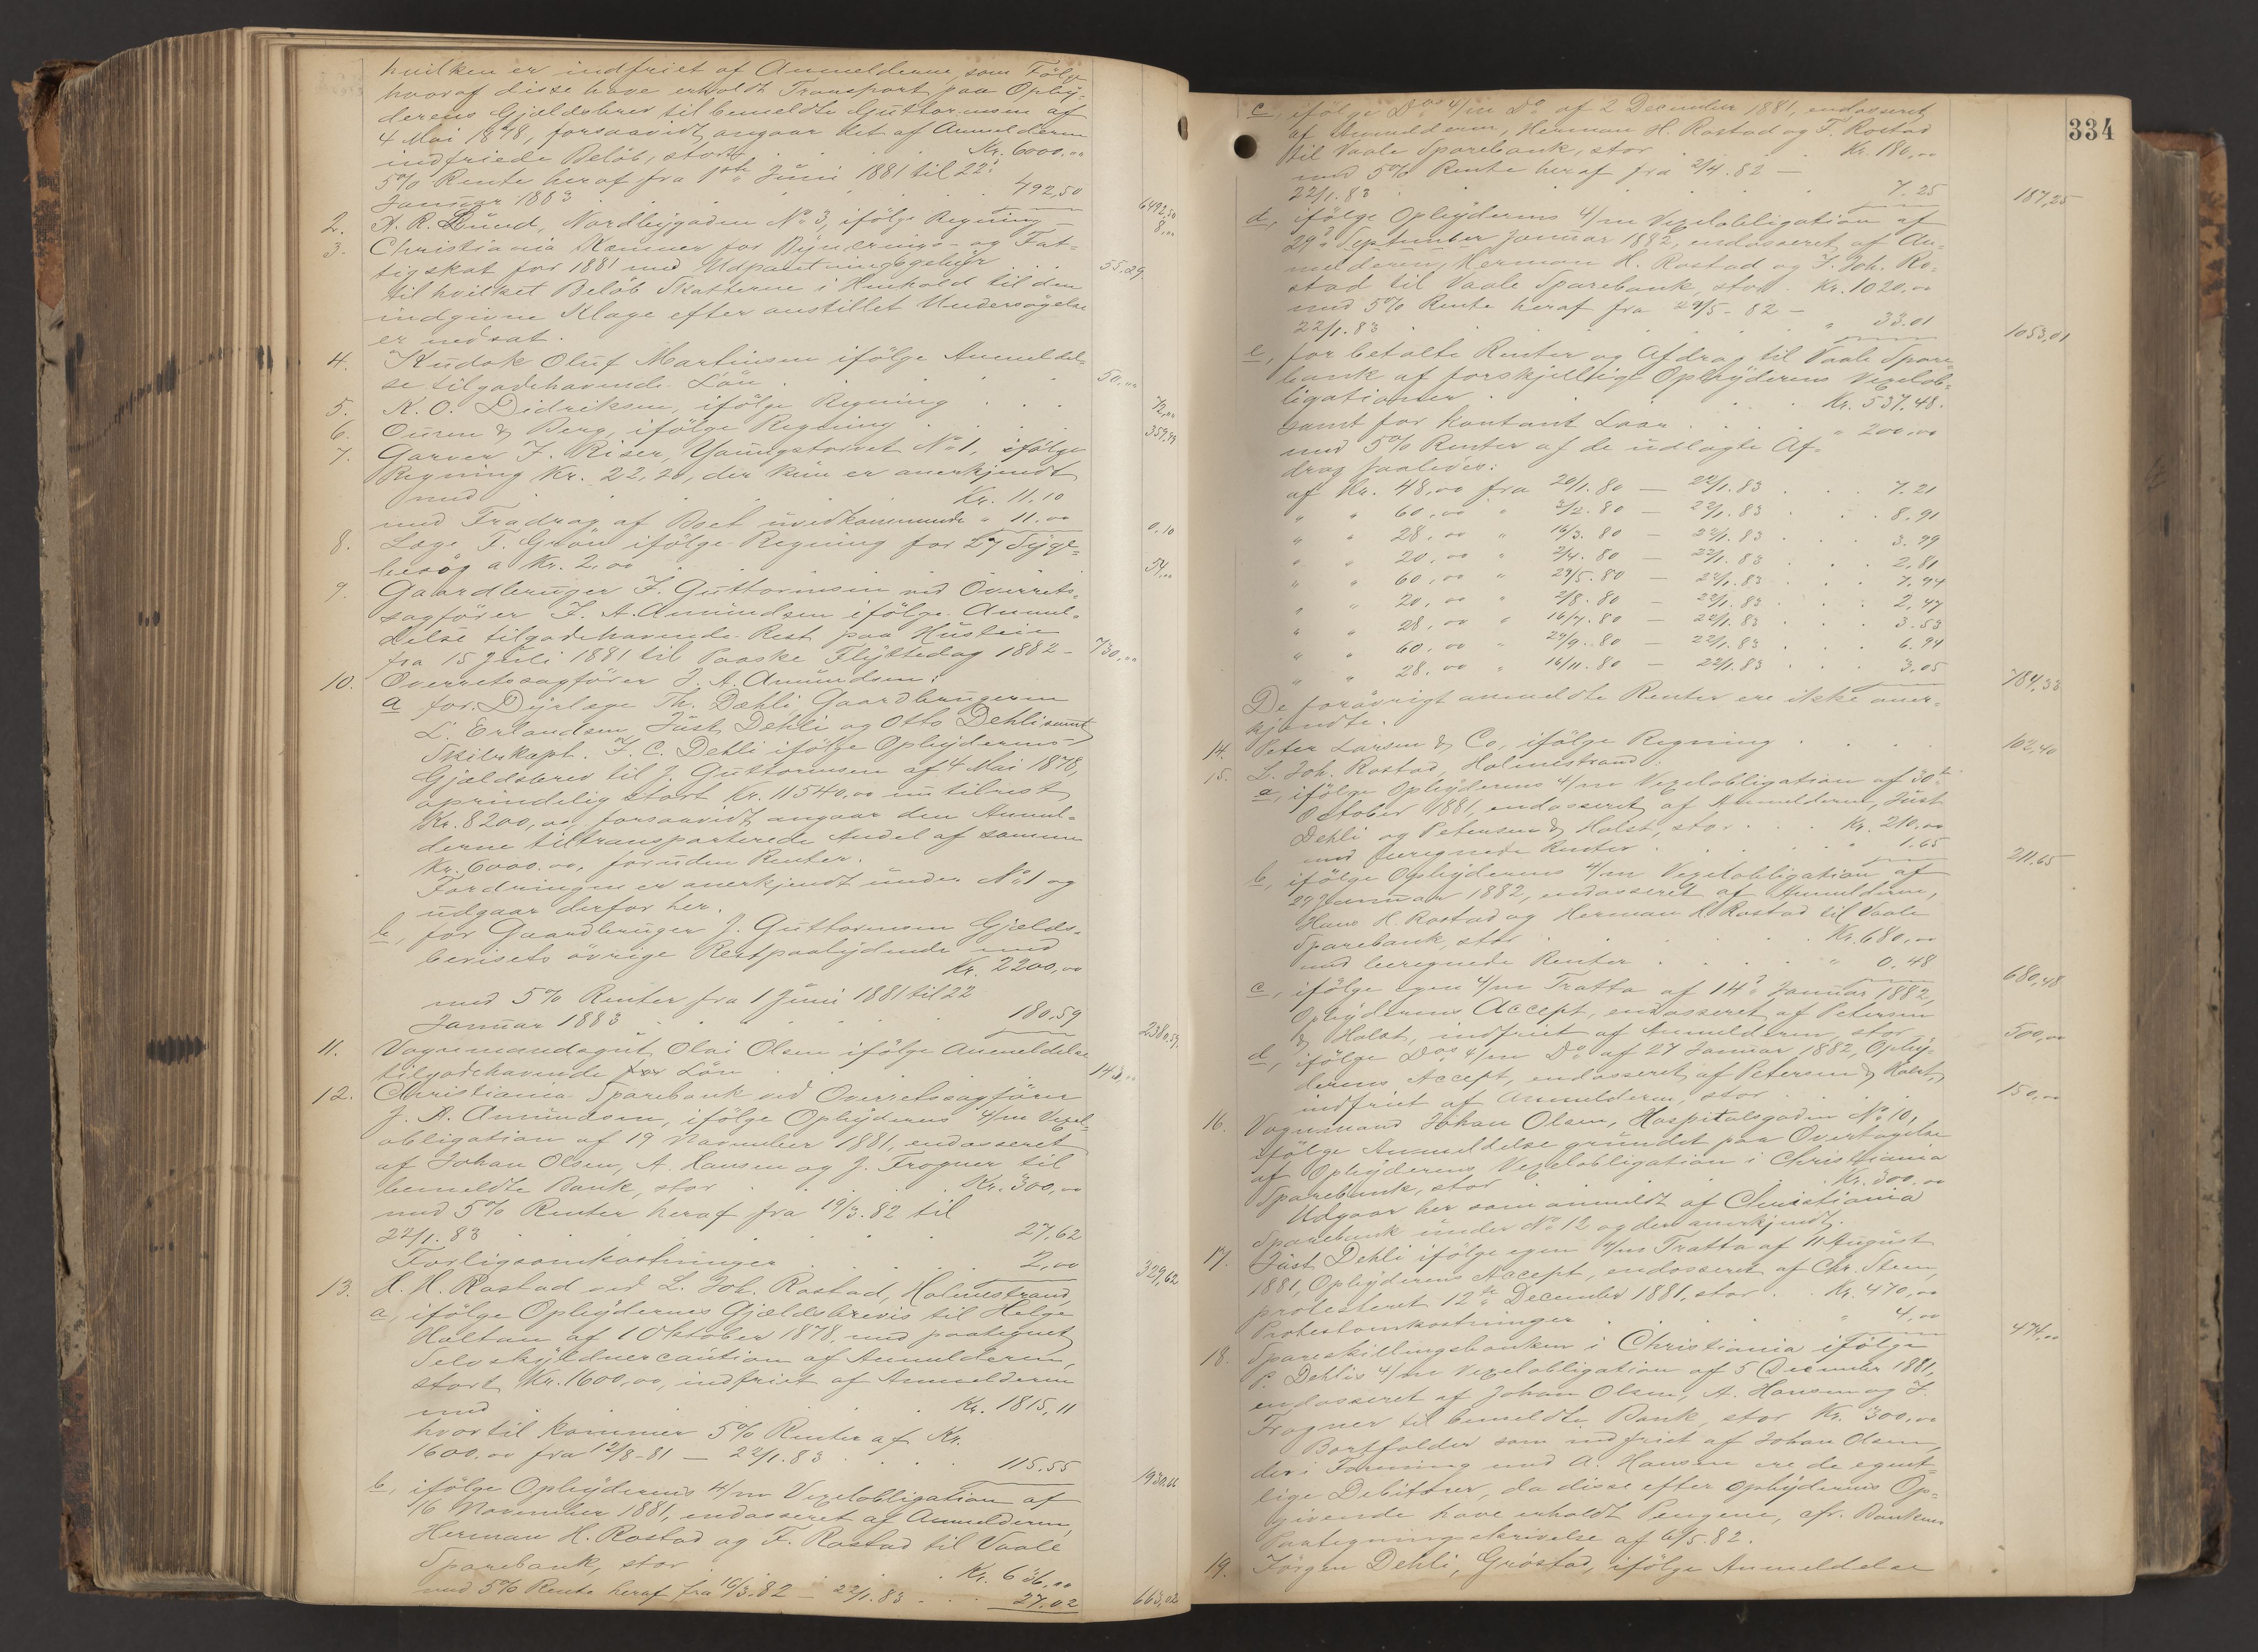 hvilken er indfriet af Anmelderne, som Følge
hvoraf disse have erholdt Transport paa Opbÿ-
derens Gjældsbrev til bemeldte Guttormsen af
4 Mai 1878, forsaavidt angaar det af Anmelderne
indfriede Beløb, stort . . . Kr. 6000,00
5% Rente heraf fra 1ste Juni 1881 til 22d
Januar 1883 . . . 492,50 6492,50
2. A. R. Lund, Nordbygaden No 3, ifølge Regning 8,00
3. Christiania Kæmner for Bÿ og Fat-
tigskat for 1881 med Udpantningsgebÿr . . 55.29
til hvilket Beløb Skatterne i Henhold til den
indgivne Klage efter anstillet Undersøgelse
er nedsat.
4. Kudsk Oluf Martinsen ifølge Anmeldel-
se tilgodehavende Løn . . . 50,00
5. K. O. Didriksen, ifølge Regning . . . 72,00
6. Ouren & Berg, ifølge Regning . . .
7. Garver F. Riser, Youngstorvet No 1, ifølge
Regning Kr. 22,20, der kun er anerkjendt
med . . . Kr. 11.10
med Fradrag af Boet uvedkommende " 11.00 0,10
8. Læge F. Grøn ifølge Regning for 27 Sÿge-
besøg a Kr. 2,00 . . . 54,00
9. Gaardbruger J. Guttormsen ved Overrets-
sagfører J. A. Amundsen ifølge Anmel-
delse tilgodehavende Rest paa Husleie
fra 15 Juli 1881 til Paaske Flÿttedag 1882 - 730,00
10. Overretssagfører J. A. Amundsen:
a for Dÿrlæge Th. Dæhli, Gaardbrugerne
L. Erlandsen, Just Dehli og Otto Dehli samt
Skibskapt. F. C. Dehli ifølge Opbÿderens
Gjældsbrev til J. Guttormsen af 4 Mai 1878,
oprindelig stort Kr. 11540,00 nu tilrest
Kr. 8200,00 forsaavidt angaar den Anmel-
derne tiltransporterede Andel af samme
Kr. 6000.00, foruden Renter.
Fordringen er anerkjendt under No 1 og
udgaar derfor her.
b, for Gaardbruger J. Guttormsen Gjælds-
bevisets øvrige Restpaalÿdende med
Kr. 2200,00
med 5% Renter fra 1 Juni 1881 til 22
Januar 1883 . . . 180,59 2380,59
11. Vognmandsgut Olai Olsen ifølge Anmeldelse
tilgodehavende Løn . . . 143,00
12. Christiania Sparebank ved Overretssagfører
J. A. Amundsen, ifølge Opbÿderens 4/m Vexel-
obligation af 19 November 1881, endosseret
af Johan Olsen, A. Hansen og J. Frogner til
bemeldte Bank, stor . . . Kr. 300,00
med 5% Renter heraf fra 19/3.82 til
22/1.83 . . . 27,62
Forligsomkostninger . . . 2,00 329,62
13. H. H. Rostad ved L. Joh. Rostad, Holmestrand
a, ifølge Opbÿdernes Gjældsbrevis til Helge
Haltan af 1 Oktober 1878, med paategnet
Selvskÿldnercaution af Anmelderen,
stort Kr. 1600,00, indfriet af Anmelderen
med . . . Kr. 1815,11
hvortil kommer 5% Renter af Kr.
1600.00 fra 12/8-81 — 22/1.83 . . . 115,55 1930,66
b, ifølge Opbÿderens 4/m Vexelobligation af
16 November 1881, endosseret af Anmelderen,
Herman H. Rostad og F. Rostad til Vaale
Sparebank, stor . . . Kr. 636,00
med 5% Rente heraf fra 16/3.82 — 22/1.83 . . . 27.02 663,02
334
c, ifølge Do 4/m Do af 2 December 1881, endosseret
af Anmelderen, Herman H. Rostad og F. Rostad
til Vaale Sparebank, stor . . . Kr. 180,00
med 5% Rente heraf fra 2/4.82 —
22/1.83 . . . 7.25 187,25
d, ifølge Opbÿderens 4/m Vexelobligation af
29d September Januar 1882, endosseret af An-
melderen, Herman H. Rostad og J. Joh. Ro-
stad til Vaale Sparebank, stor . Kr. 1020,00
med 5% Rente heraf fra 29/5-82 —
22/1.83 . . . " 33.01 1053,01
e, for betalte Renter og Afdrag til Vaale Spare-
bank af forskjellige Opbÿderens Vexelob-
ligationer . . . Kr. 537.48.
samt for kontant Laan . . . " 200,00
med 5% Renter af de udlagte Af-
drag saaledes:
af Kr. 48,00 fra 20/1.80 — 22/1.83 . . . 7.21
" " 60,00 " 2/2.80 — 22/1.83 . . . 8.91
" " 28,00 " 16/3.80 — 22/1.83 . . . 3.99
" " 20,00 " 2/4.80 — 22/1.83 . . . 2,81
" " 60,00 " 29/5.80 — 22/1.83 . . . 7,94
" " 20,00 " 2/8.80 — 22/1.83 . . . 2,47
" " 28,00 " 16/7.80 — 22/1.83 . . . 3.53
" " 60,00 " 29/9.80 — 22/1.83 . . . 6.94
" " 28.00 " 16/11.80 — 22/1.83 . . . 3.05 784,33
De forøvrigt anmeldte Renter ere ikke aner-
kjendte.
14. Peter Larsen & Co, ifølge Regning . . . 103,40
15. L. Joh. Rostad, Holmestrand:
a, ifølge Opbÿderens 4/m Vexelobligation af 30te
October 1881, endosseret af Anmelderen, Just
Dehli og Petersen & Holst, stor . . . Kr. 210,00
med beregnede Renter . . . " 1.65 211,65
b, ifølge Opbÿderens 4/m Vexelobligation af
29 Januar 1882, endosseret af Anmelderen,
Hans H. Rostad og Herman H. Rostad til Vaale
Sparebank, stor . . . Kr. 680,00
med beregnede Renter . . . " 0,48 680,48
c, ifølge egen 4/m Tratta af 14d Januar 1882,
Opbÿderens Accept, endosseret af Petersen
& Holst, indfriet af Anmelderen, stor 500,00
d, ifølge Dos 4/m Do af 27 Januar 1882, Opbÿ-
derens Accept, endosseret af Petersen & Holst,
indfriet af Anmelderen, stor . . . 150,00
16. Vognmand Johan Olsen, Hospitalsgaden No 10,
ifølge Anmeldelse grundet paa Overtagelse
af Opbÿderens Vexelobligation i Christiania
Sparebank, stor . . . Kr. 300.00
Udgaar her som anmeldt af Christiania
Sparebank under No 12 og der anerkjendt.
17. Just Dehli ifølge egen 4/m Tratta af 11 August
1881, Opbÿderens Accept, endosseret af Chr. Steen,
protesteret 12te December 1881, stor . . Kr. 470,00
Protestomkostninger . . . " 4,00 474,00
18. Spareskillingsbanken i Christiania ifølge
P. Dehlis 4/m Vexelobligation af 5 December 1881,
endosseret af Johan Olsen, A. Hansen og J.
Frogner til bemeldte Bank, stor Kr. 300,00
Bortfalder som indfriet af Johan Olsen,
der i Forening med A. Hansen ere de egent-
lige Debitorer, da disse efter Opbÿderens Op-
givende have erholdt Pengene, cfr. Bankens
Paategningsskrivelse af 6/5.82.
19. Jørgen Dehli, Grøstad, ifølge Anmeldelse